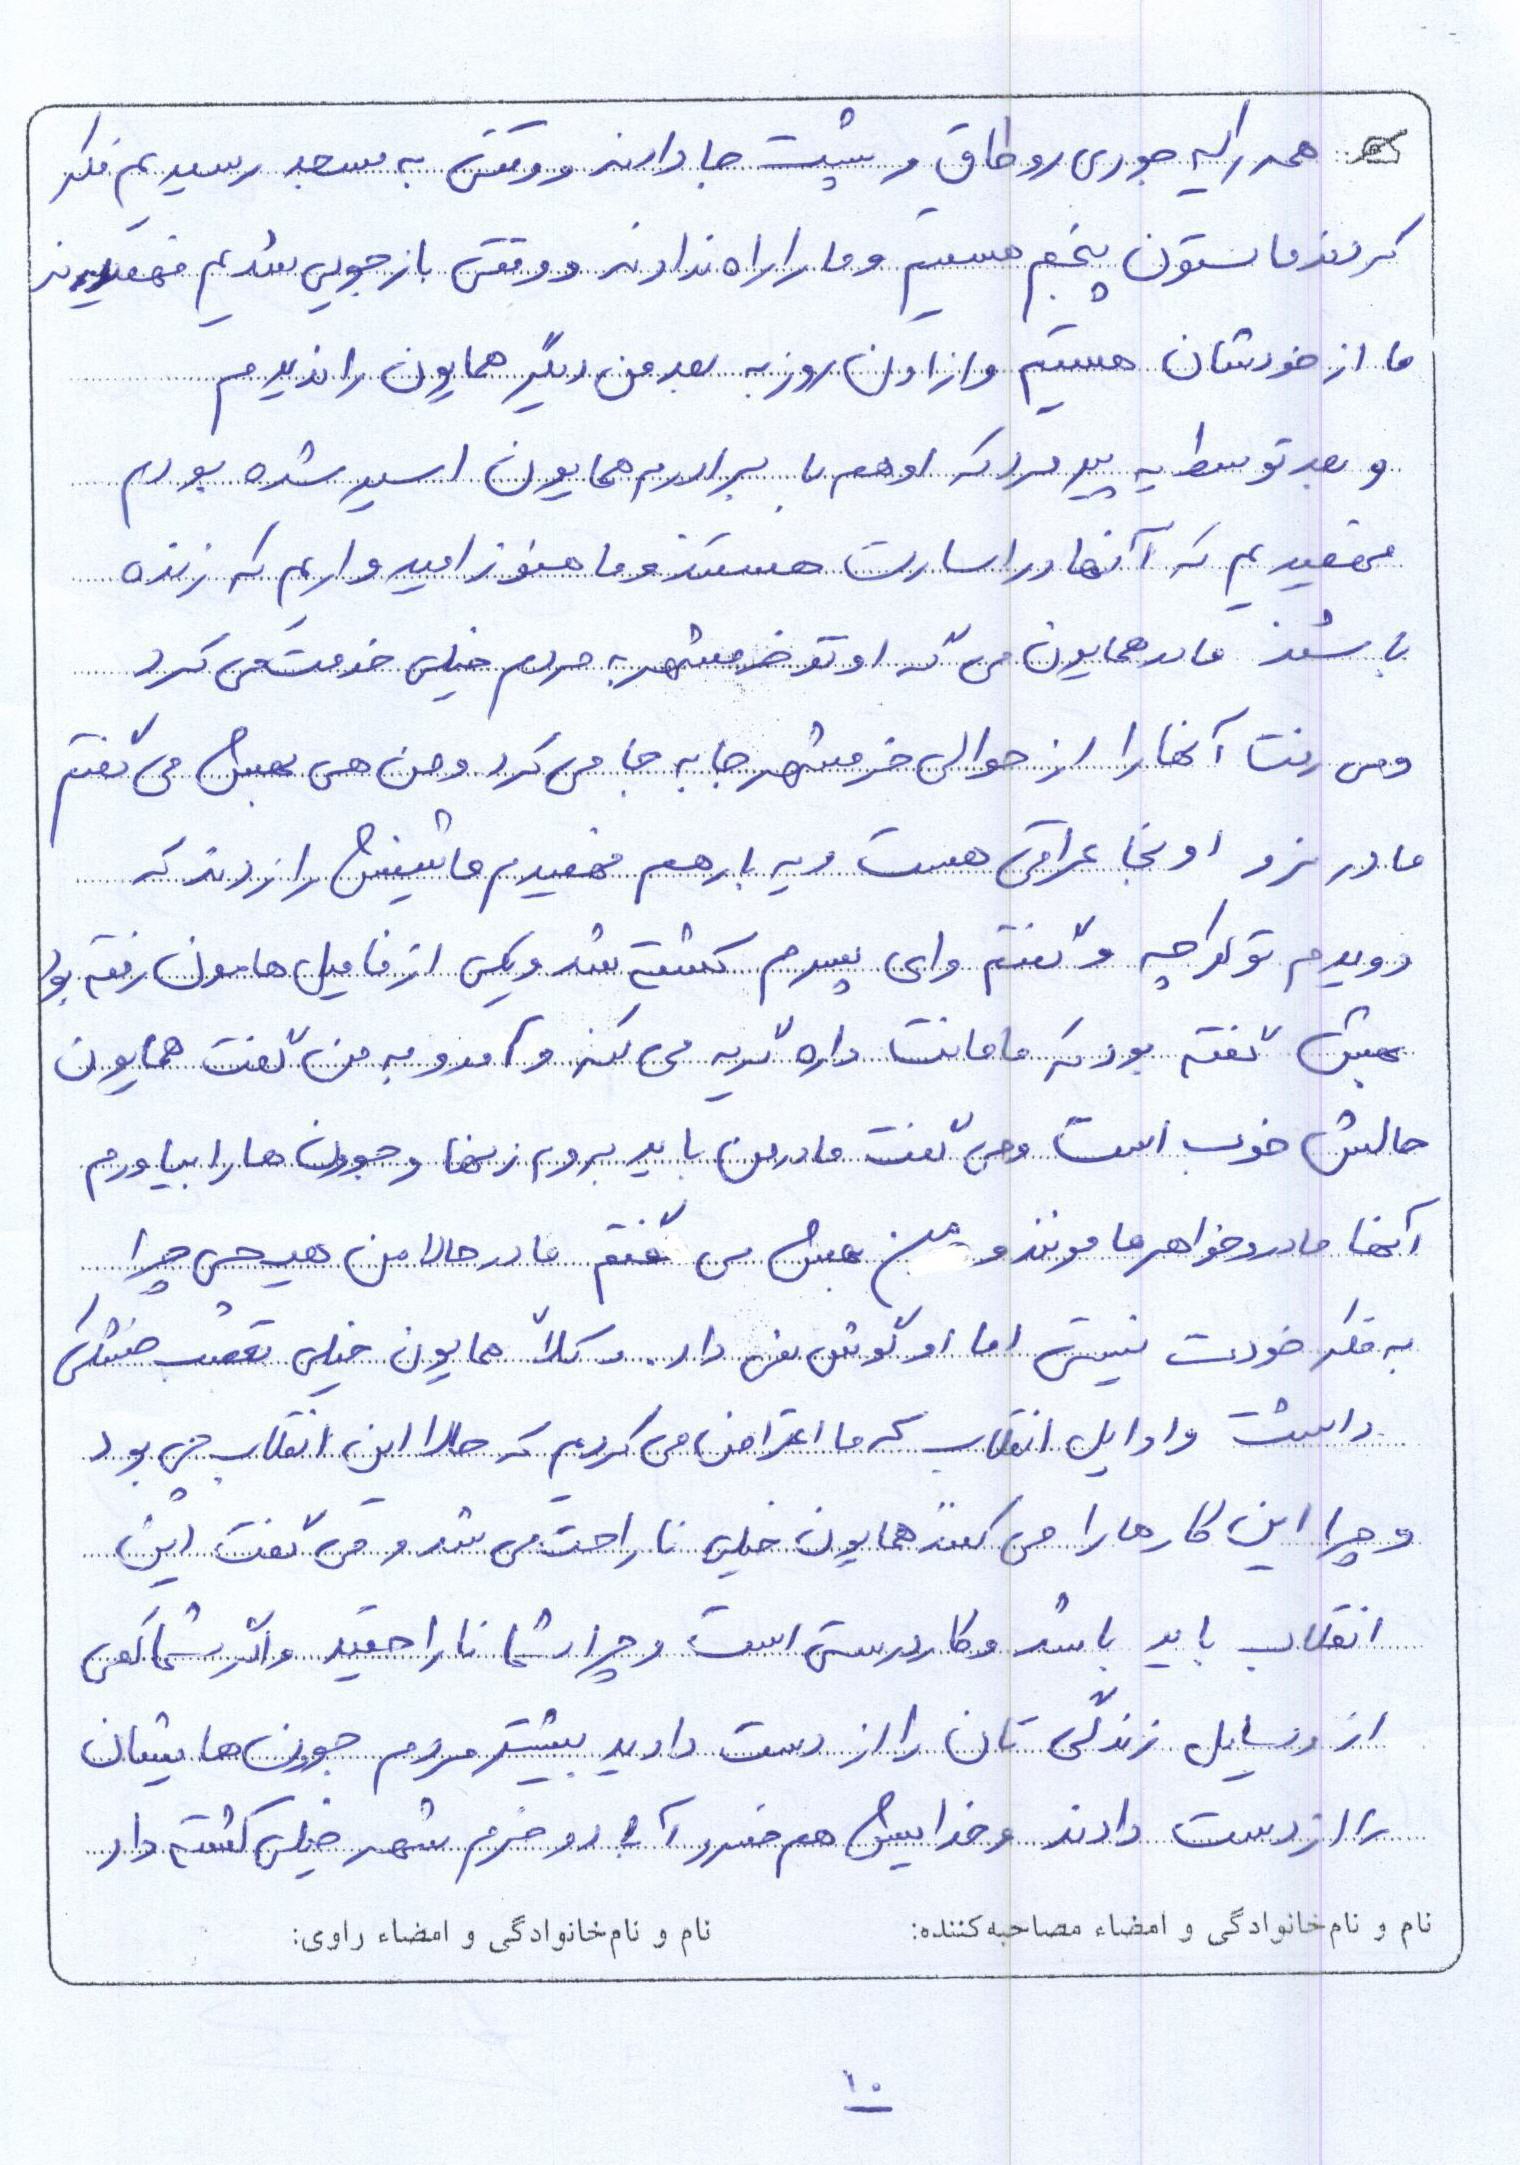 همه را یه جوری رو طاق و پشت جا دادند و وقتی به مسجد رسیدیم فکر
کردند ما ستون پنجم هستیم و ما را راه ندادند و وقتی بازجویی شدیم فهمیدند
ما از خودشان هستیم و از اون روز به بعد من دیگر همایون را ندیدم
و بعد توسط یه پیرمرد که او هم با برادرم همایون اسیر شده بودم
فهمیدیم که آنها در اسارت هستند و ما هنوز امیدواریم که زنده
باشند مادر همایون می گه او تو خرمشهر به مردم خیلی خدمت می کرد
و می رفت آنها را از حوالی خرمشهر جا به جا می کرد و من هی بهش می گفتم
مادر نرو اونجا عراقی هست و یه بار هم فهمیدم ماشینش را زدند که
دویدم تو کوچه و گفتم وای پسرم کشته شد و یکی از فامیل هامون رفته بود
بهش گفته بود که مامانت داره گریه می کنه و آمد و به من گفت همایون
حالش خوب است و می گفت مادر من باید بروم زنها و جوون ها را بیاورم
آنها مادر و خواهر ما موندند و من بهش می گفتم مادر حالا من هیچی چرا
به فکر خودت نیستی اما او گوش نمی داد. و کلاً همایون خیلی تعصب خشکی
داشت و اوایل انقلاب که ما اعتراض می کردیم که حالا این انقلاب چی بود
و چرا این کارها را می کنند همایون خیلی ناراحت می شد و می گفت این
انقلاب باید باشد و کار درستی است و چرا شما ناراحتید و اگر شما کمی
از وسایل زندگی تان را از دست دادید بیشتر مردم جوون هایشان
را از دست دادند و خدایش هم خسرو آباد و خرم شهر خیلی کشته داد
نام و نام خانوادگی و امضاء مصاحبه کننده: نام و نام خانوادگی و امضاء راوی:
۱۰